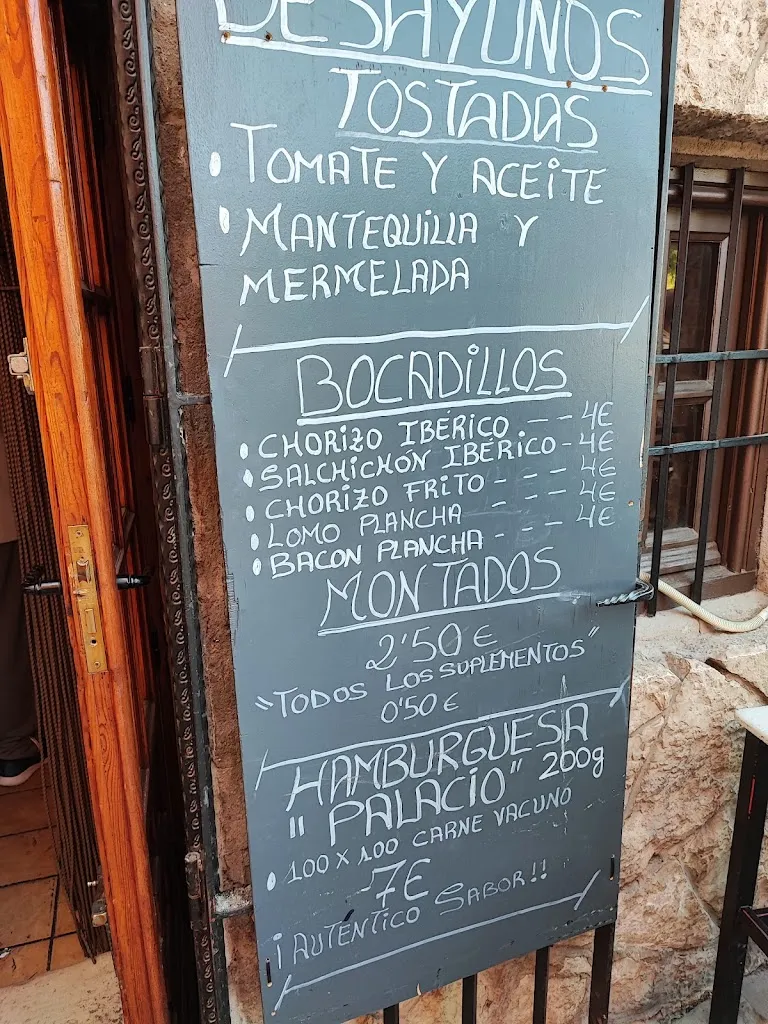 DESAYUNOS
TOSTADAS
• TOMATE Y ACEITE
• MANTEQUILLA Y
MERMELADA
BOCADILLOS
• CHORIZO IBÉRICO -- 4€
• SALCHICHÓN IBÉRICO - 4€
• CHORIZO FRITO - -- 4€
• LOMO PLANCHA - -- 4€
• BACON PLANCHA - -- 4€
MONTADOS
2'50 €
"TODOS LOS SUPLEMENTOS"
0'50 €
HAMBURGUESA
"PALACIO" 200g
• 100 x 100 CARNE VACUNO
7€
¡AUTENTICO SABOR!!